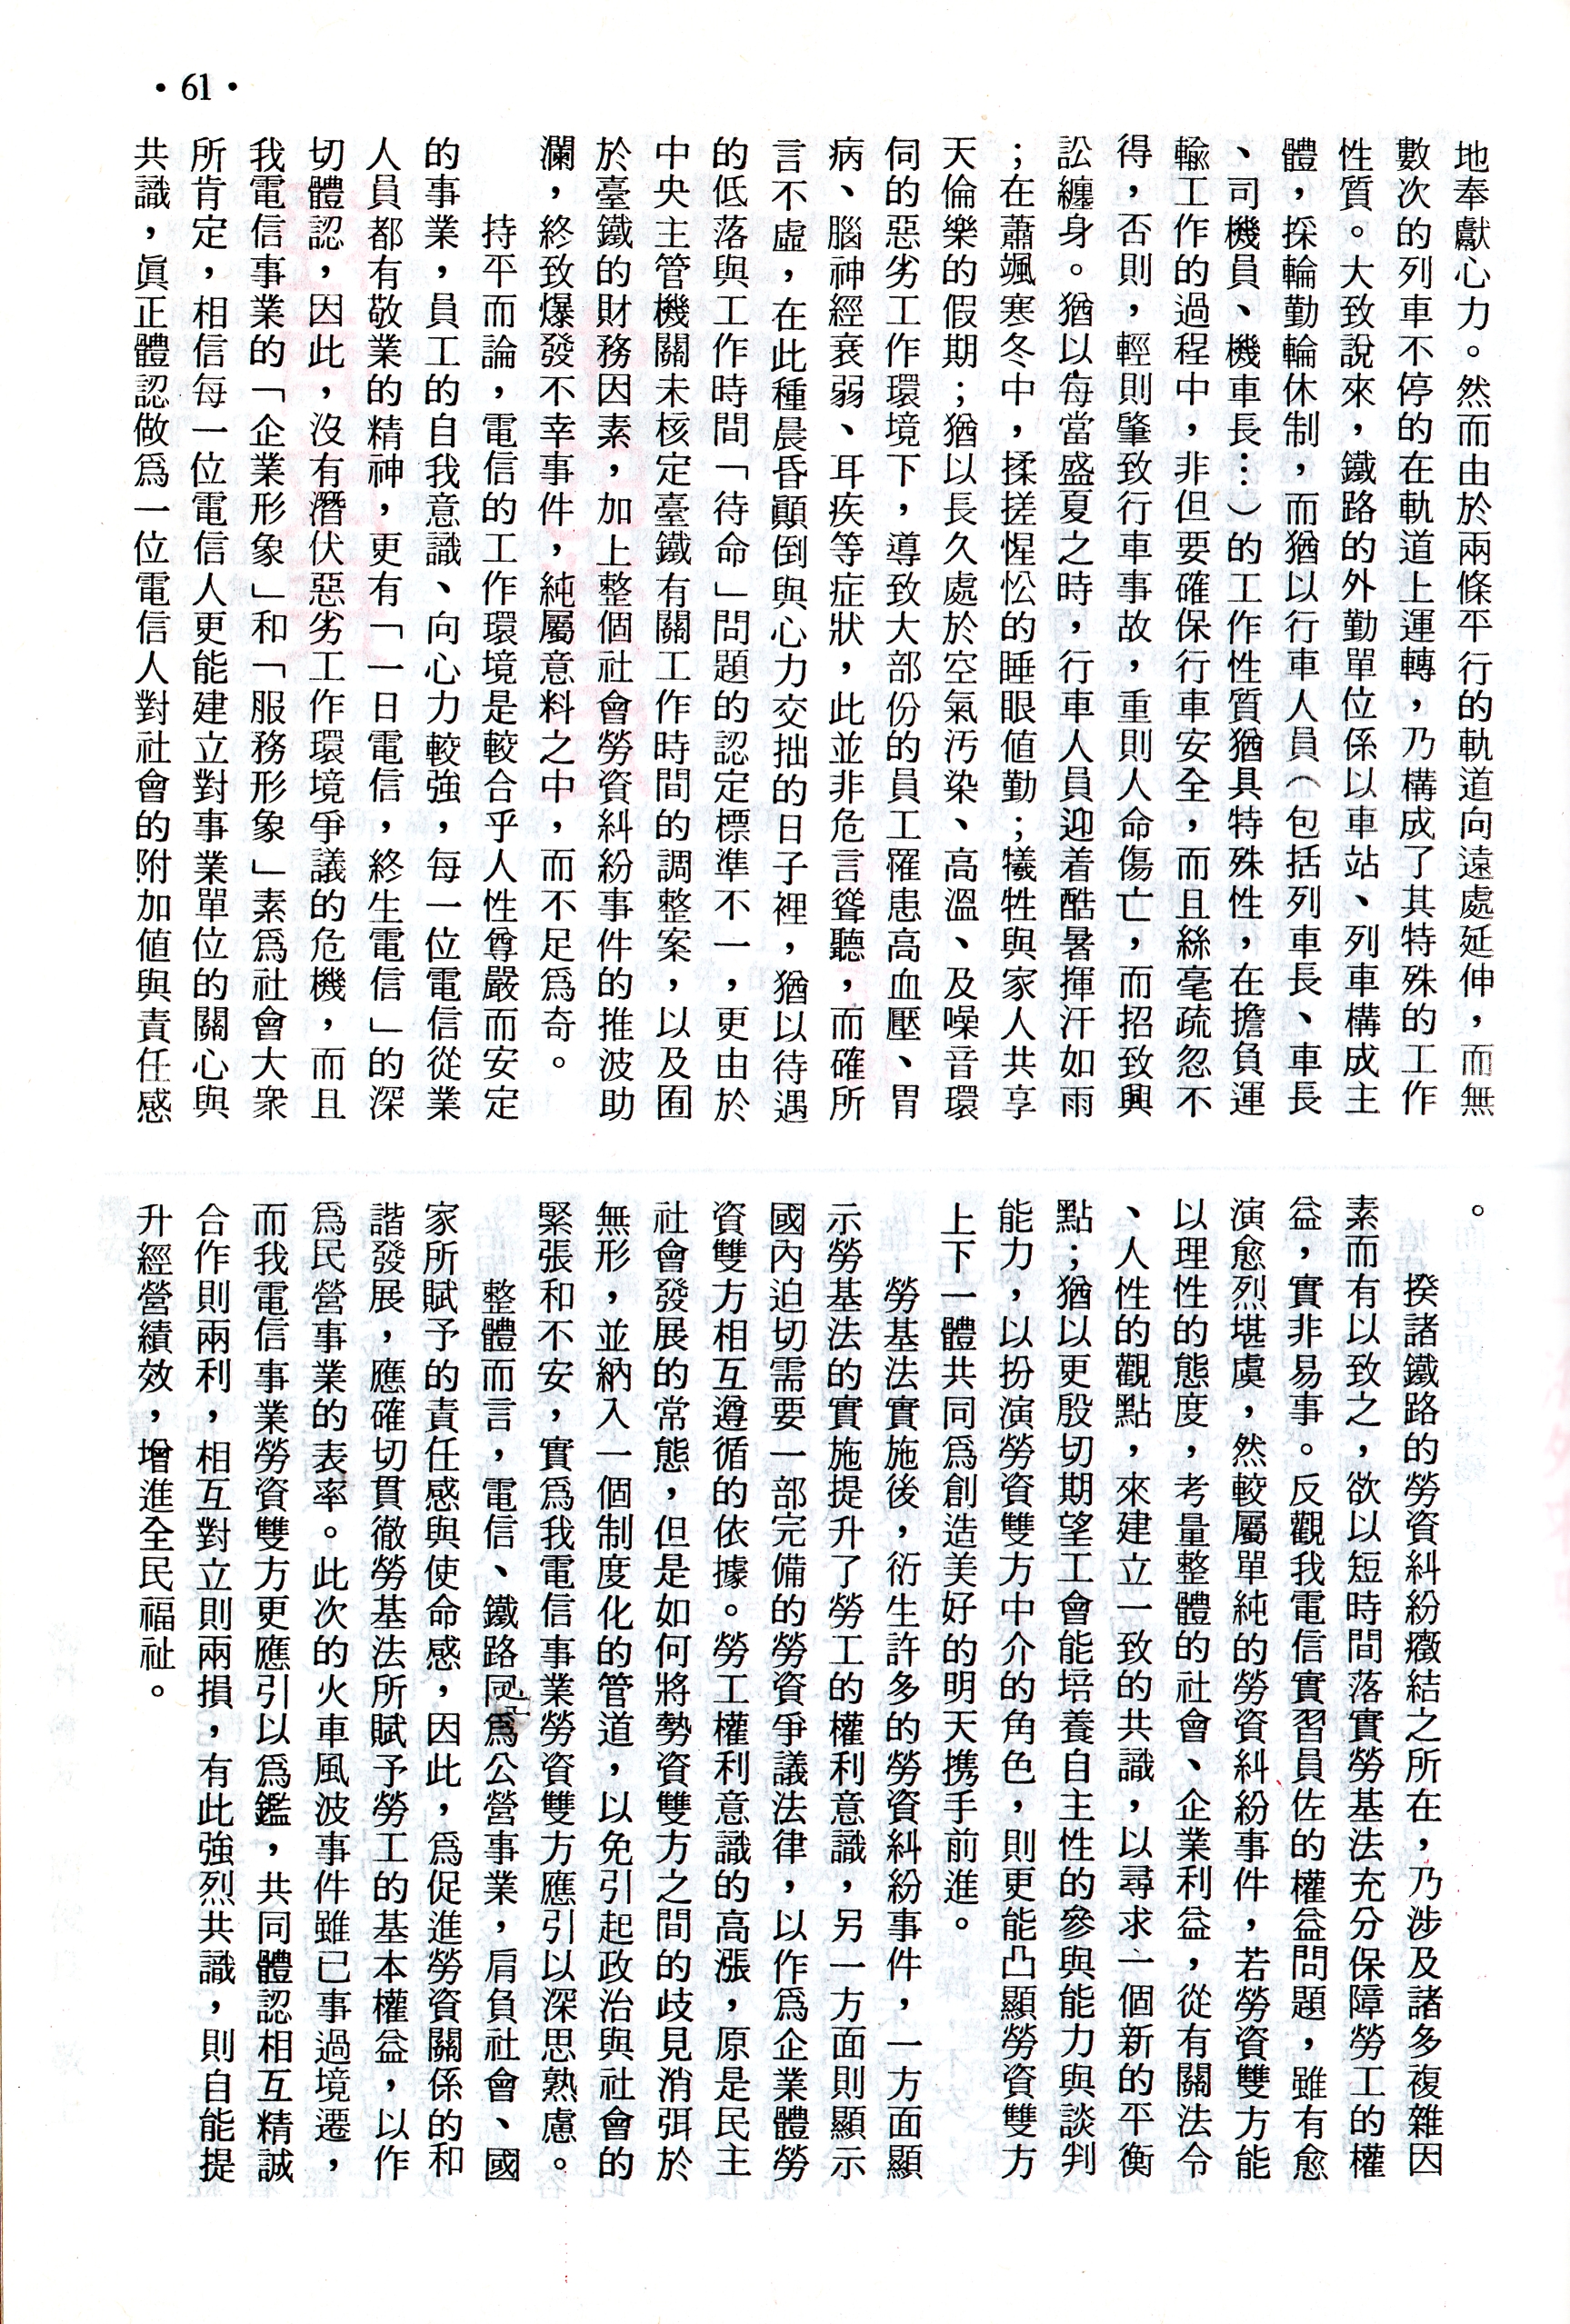 •61•
地奉獻心力。然而由於兩條平行的軌道向遠處延伸，而無
數次的列車不停的在軌道上運轉，乃構成了其特殊的工作
性質。大致說來，鐵路的外勤單位係以車站、列車構成主
體，採輪勤輪休制，而猶以行車人員（包括列車長、車長
、司機員、機車長…）的工作性質猶具特殊性，在擔負運
輸工作的過程中，非但要確保行車安全，而且絲毫疏忽不
得，否則，輕則肇致行車事故，重則人命傷亡，而招致興
訟纏身。猶以每當盛夏之時，行車人員迎着酷暑揮汗如雨
；在蕭颯寒冬中，揉搓惺忪的睡眼值勤；犧牲與家人共享
天倫樂的假期；猶以長久處於空氣汚染、高溫、及噪音環
伺的惡劣工作環境下，導致大部份的員工罹患高血壓、胃
病、腦神經衰弱、耳疾等症狀，此並非危言聳聽，而確所
言不虛，在此種晨昏顚倒與心力交拙的日子裡，猶以待遇
的低落與工作時間「待命」問題的認定標準不一，更由於
中央主管機關未核定臺鐵有關工作時間的調整案，以及囿
於臺鐵的財務因素，加上整個社會勞資糾紛事件的推波助
瀾，終致爆發不幸事件，純屬意料之中，而不足爲奇。
持平而論，電信的工作環境是較合乎人性尊嚴而安定
的事業，員工的自我意識、向心力較強，每一位電信從業
人員都有敬業的精神，更有「一日電信，終生電信」的深
切體認，因此，沒有潛伏惡劣工作環境爭議的危機，而且
我電信事業的「企業形象」和「服務形象」素爲社會大衆
所肯定，相信每一位電信人更能建立對事業單位的關心與
共識，眞正體認做爲一位電信人對社會的附加値與責任感
。
揆諸鐵路的勞資糾紛癥結之所在，乃涉及諸多複雜因
素而有以致之，欲以短時間落實勞基法充分保障勞工的權
益，實非易事。反觀我電信實習員佐的權益問題，雖有愈
演愈烈堪虞，然較屬單純的勞資糾紛事件，若勞資雙方能
以理性的態度，考量整體的社會、企業利益，從有關法令
、人性的觀點，來建立一致的共識，以尋求一個新的平衡
點；猶以更殷切期望工會能培養自主性的參與能力與談判
能力，以扮演勞資雙方中介的角色，則更能凸顯勞資雙方
上下一體共同爲創造美好的明天携手前進。
勞基法實施後，衍生許多的勞資糾紛事件，一方面顯
示勞基法的實施提升了勞工的權利意識，另一方面則顯示
國內迫切需要一部完備的勞資爭議法律，以作爲企業體勞
資雙方相互遵循的依據。勞工權利意識的高漲，原是民主
社會發展的常態，但是如何將勢資雙方之間的歧見消弭於
無形，並納入一個制度化的管道，以免引起政治與社會的
緊張和不安，實爲我電信事業勞資雙方應引以深思熟慮。
整體而言，電信、鐵路同爲公營事業，肩負社會、國
家所賦予的責任感與使命感，因此，爲促進勞資關係的和
諧發展，應確切貫徹勞基法所賦予勞工的基本權益，以作
爲民營事業的表率。此次的火車風波事件雖已事過境遷，
而我電信事業勞資雙方更應引以爲鑑，共同體認相互精誠
合作則兩利，相互對立則兩損，有此強烈共識，則自能提
升經營績效，增進全民福祉。